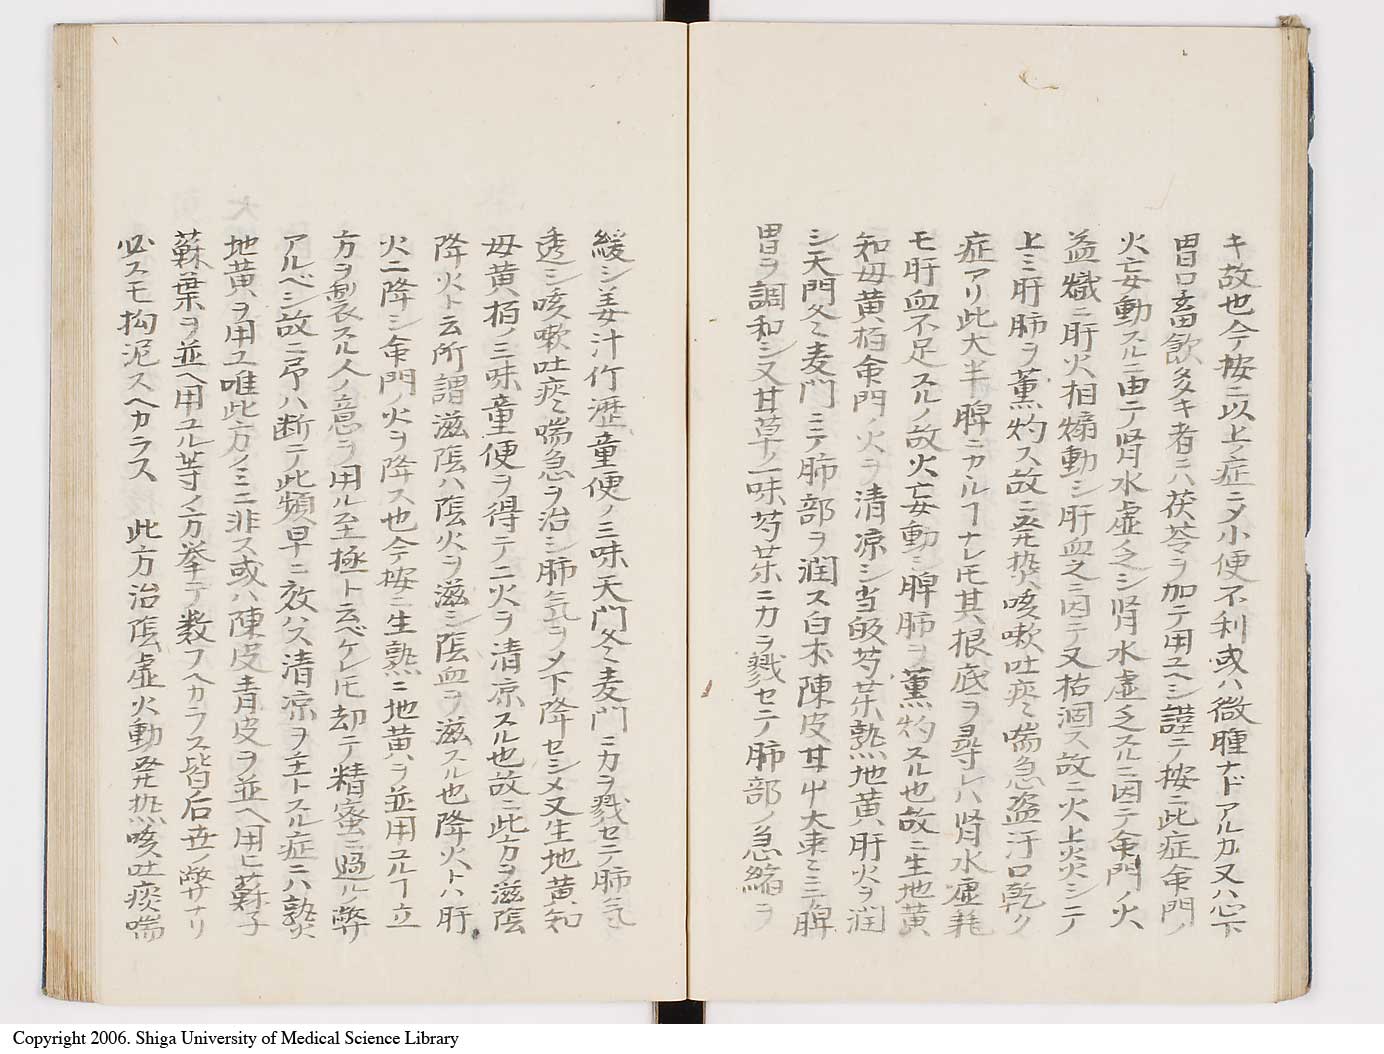 キ故也今按ニ以上ノ症ニタ小便不利或ハ微腫ナドアルカ又ハ心下
胃口畜飲多キ者ニハ茯苓ヲ加テ用ユヘシ謹テ按ニ此症命門ノ
火妄動スルニ由テ腎水虚乏シ腎水虚乏スルニ因テ命門ノ火
益熾ニ肝火相煽動シ肝血之ニ因テ又枯涸ス故ニ火上炎シテ
上ミ肝肺ヲ薫灼ス故ニ発熱咳嗽吐痰喘急盗汗口乾ク
症アリ此大半脾ニカヽルヿナレ𪜈其根底ヲ尋レハ腎水虚耗
モ肝血不足スルノ故火妄動シ脾肺ヲ薫灼スル也故ニ生地黄
知母黄栢命門ノ火ヲ清凉シ当皈芍薬熟地黄肝火ヲ潤
シ天門冬麦門ニテ肺部ヲ潤ス白朮陳皮甘艸大棗ミニテ脾
胃ヲ調和シ又甘草ノ一味芍薬ニカヲ戮セテ肺部ノ急縮ヲ
緩シ姜汁竹瀝童便ノ三味天門冬麦門ニカヲ戮セテ肺気
透シ咳嗽吐痰喘急ヲ治シ肺気ヲメ下降セシメ又生地黄知
母黄栢ノ三味童便ヲ得テ二火ヲ清凉スル也故ニ此方ヲ滋陰
降火ト云所謂滋陰ハ陰火ヲ滋シ陰血ヲ滋スル也降火トハ肝
火ニ降シ命門ノ火ヲ降ス也今按ニ生熟ニ地黄ヲ並用ユルヿ立
方ヲ製スル人ノ意ヲ用ル至極ト云ベケレ𪜈却テ精蜜ニ過ル弊
アルベシ故ニ予ハ断テ此類早ニ效ハズ清凉ヲ主トスル症ニハ熟
地黄ヲ用ユ唯此方ノミニ非ス或ハ陳皮青皮ヲ並ヘ用ヒ蘇子
蘇葉ヲ並ヘ用ユル等ノ方挙テ数フヘカラス皆后世ノ弊ナリ
必スモ拘泥スヘカラス　此方治陰虚火動発熱咳吐痰喘
Copyright 2006. Shiga University of Medical Science Library